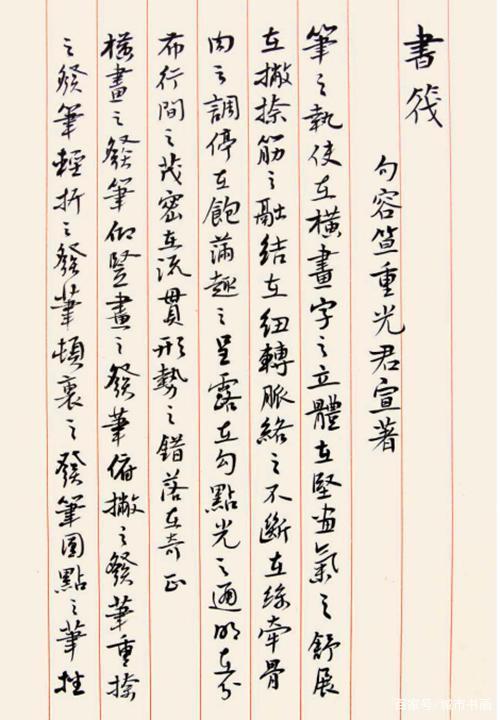 書筏
句容笪重光君宣著
筆之執使在橫畫字之立體在竪画氣之舒展
在撇捺筋之融結在紐轉脈絡之不斷在絲牽骨
肉之調停在飽滿趣之呈露在勾點光之通明在分
布行間之茂密在流貫形勢之錯落在奇正
橫畫之發筆仰竪畫之發筆俯撇之發筆重捺
之發筆輕折之發筆頓裹之發筆圓點之筆挫
百家号/城市书画